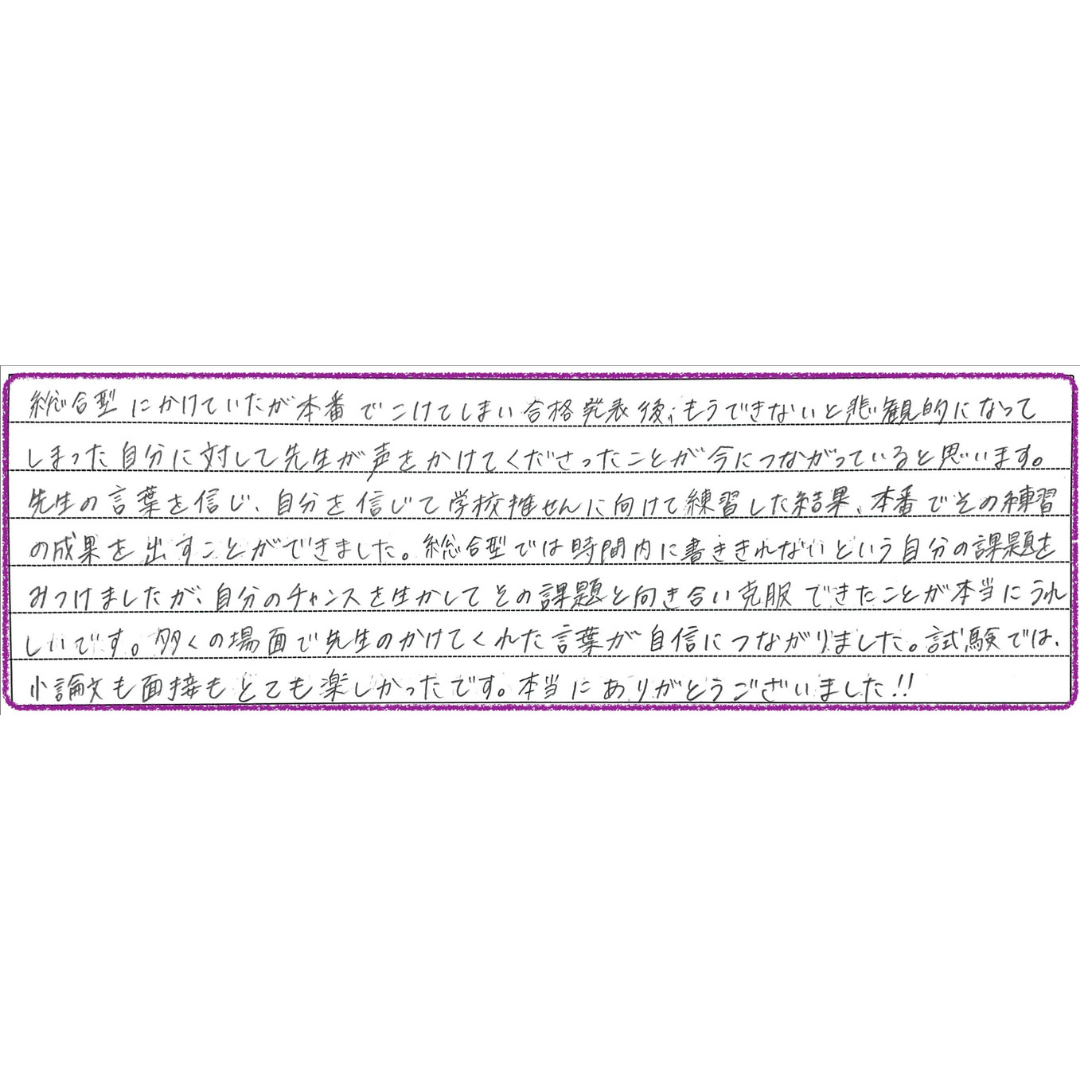 総合型にかけていたが本番でこけてしまい合格発表後、もうできないと悲観的になって
しまった自分に対して先生が声をかけてくださったことが今につながっていると思います。
先生の言葉を信じ、自分を信じて学校推せんに向けて練習した結果、本番でその練習
の成果を出すことができました。総合型では時間内に書ききれないという自分の課題を
みつけましたが、自分のチャンスを生かしてその課題と向き合い克服できたことが本当にうれ
しいです。多くの場面で先生のかけてくれた言葉が自信につながりました。試験では、
小論文も面接もとても楽しかったです。本当にありがとうございました!!